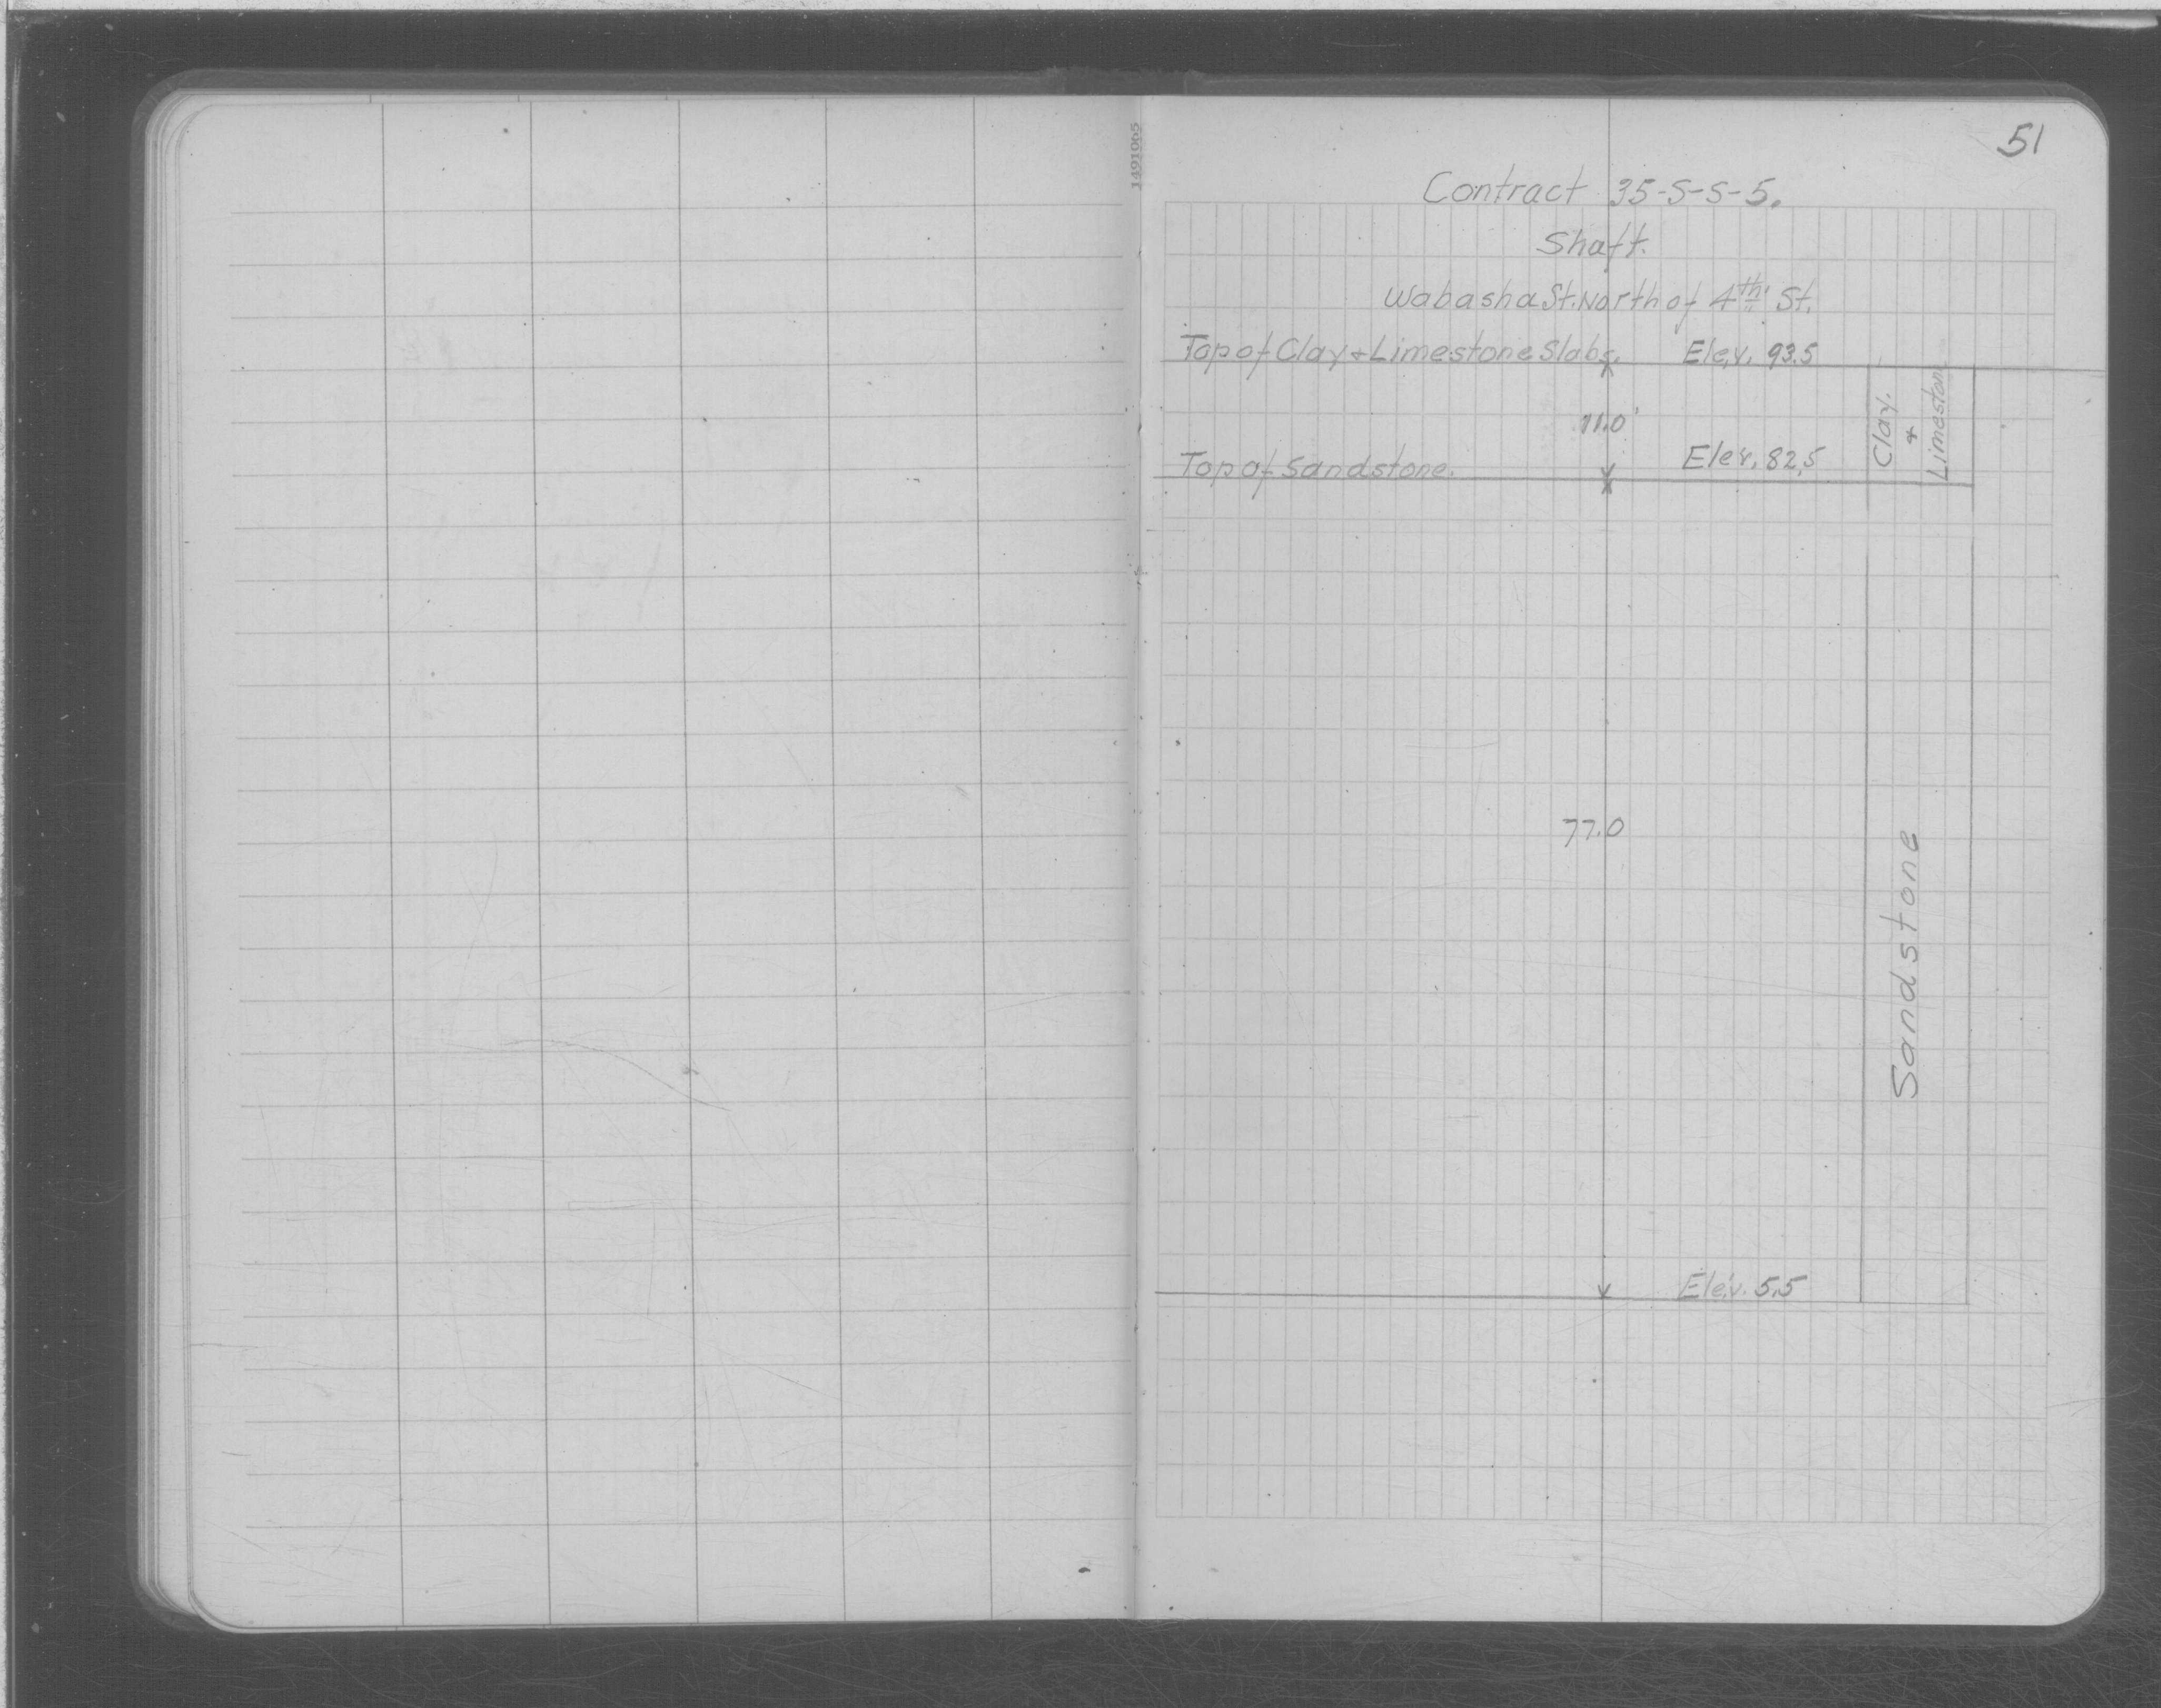 51
1491065
Contract 35-S-S-5.
Shaft.
Wabasha St. North of 4th St.
Top of Clay + Limestone Slabs. Elev. 93.5
11.0'
Clay.
+
Limestone
Top of Sandstone. Elev. 82.5
77.0
Sandstone
Elev. 5.5